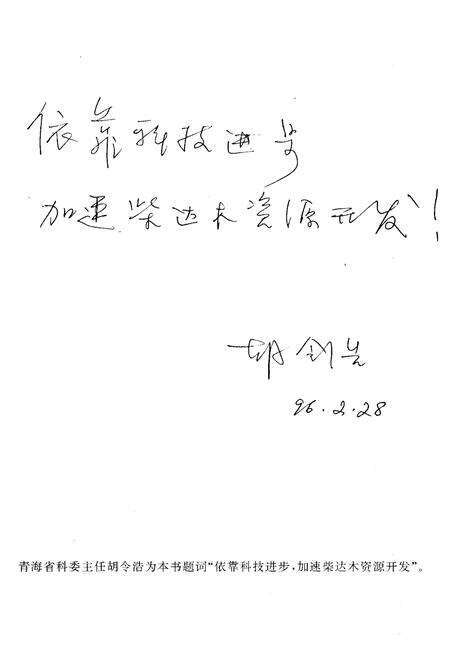 依靠科技进步
加速柴达木资源开发！
胡令浩
96.2.28
青海省科委主任胡令浩为本书题词“依靠科技进步,加速柴达木资源开发”。